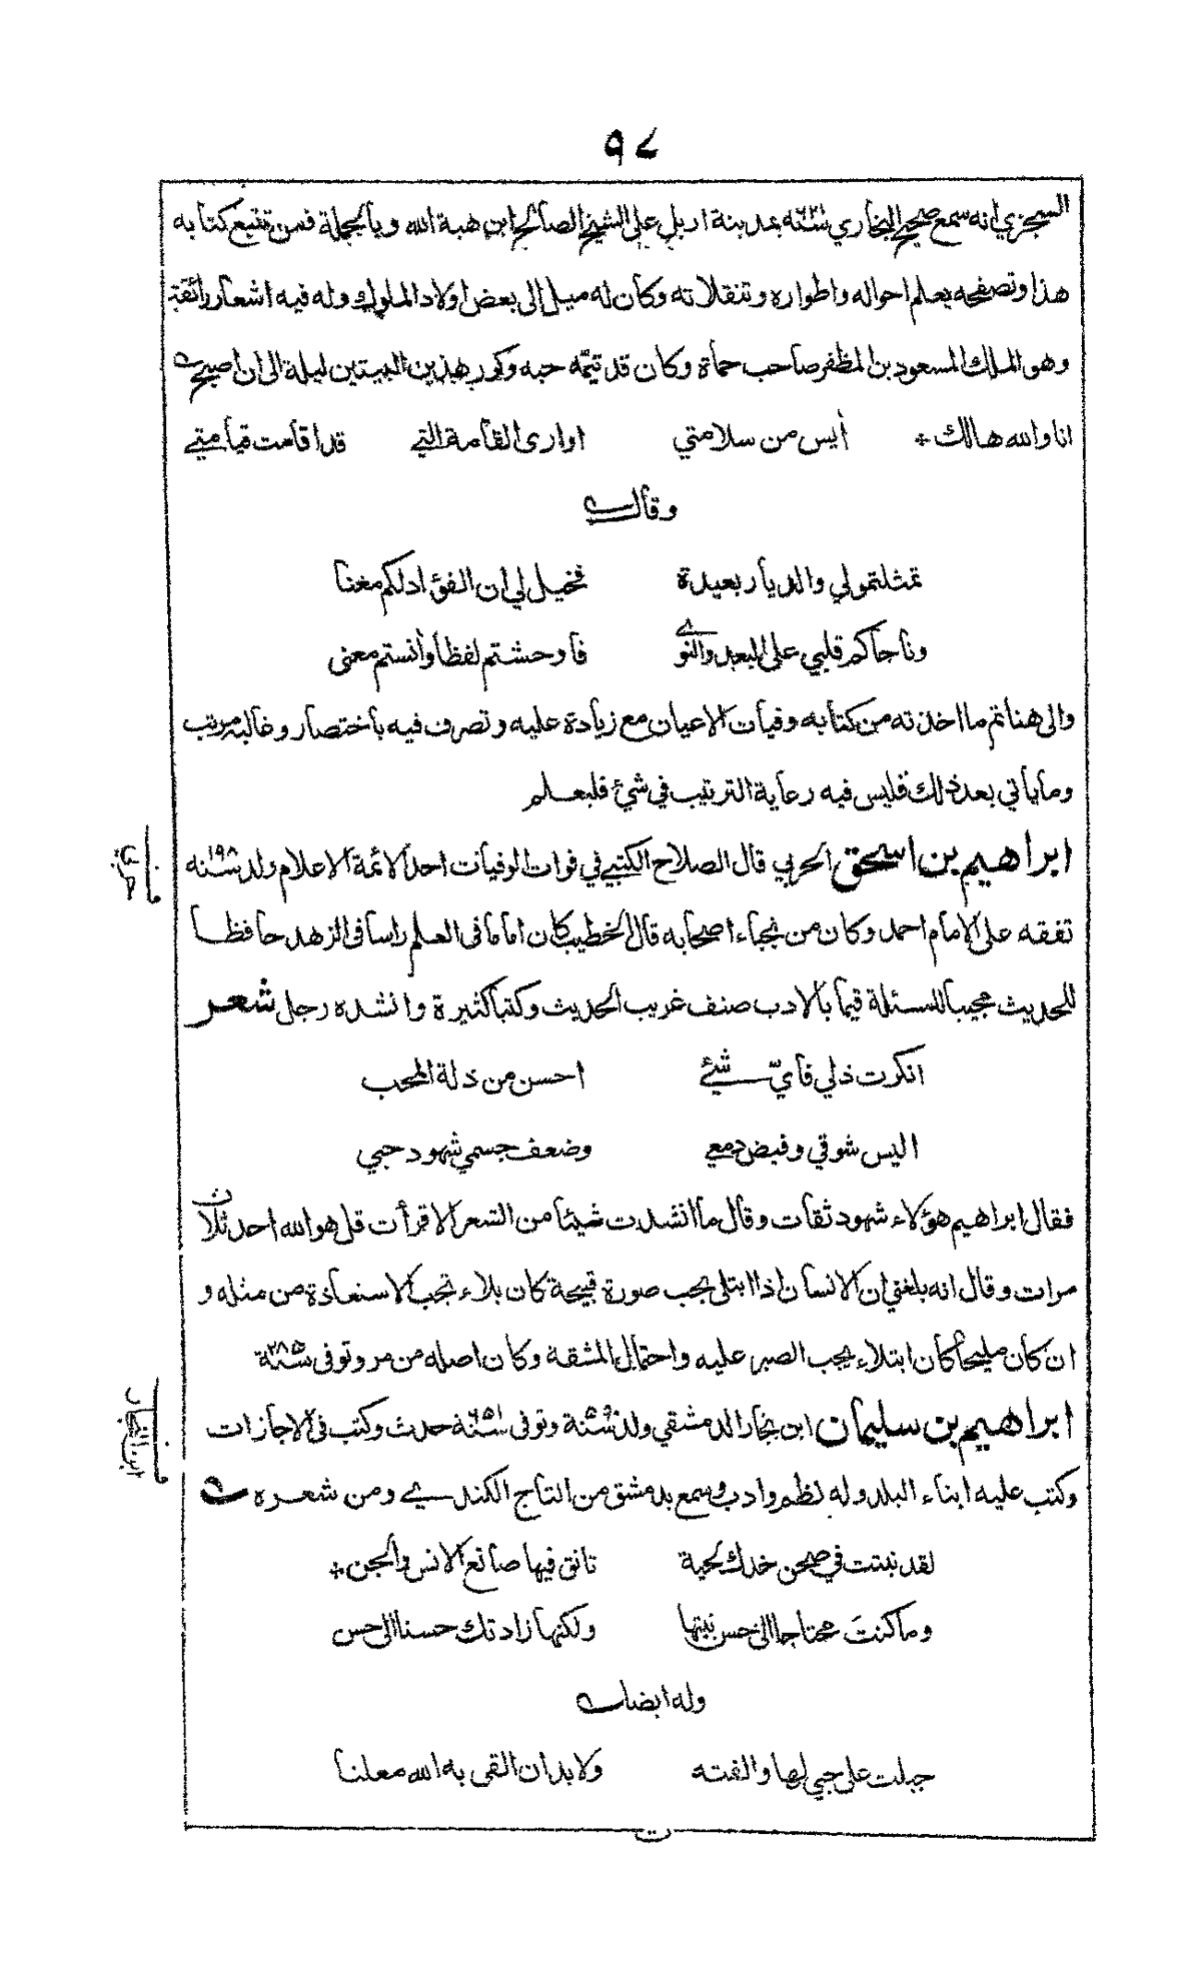 ٩٧
السجزي انه سمع صحيح البخاري سنة ٦٢١ بمدينة اربل على الشيخ الصالح ابن هبة الله وبالجملة فمن تتبع كتابه
هذا وتصفحه يعلم احواله واطواره وتنقلاته وكان له ميل الى بعض اولاد الملوك وله فيه اشعار رائقة
وهو الملك المسعود بن المظفر صاحب حماة وكان قد تيمّه حبه وكرر هذين البيتين ليلة الى ان اصبح
انا والله هالك * أيس من سلامتي اوارى القامة التي قد اقامت قيامتي
وقال
تمثلتمو لي والديار بعيدة فخيل لي ان الفؤاد لكم مغنا
وناجاكم قلبي على البعد والنوى فاوحشتم لفظا وأنستم معنى
والى هنا تم ما اخذته من كتابه وفيات الاعيان مع زيادة عليه وتصرف فيه باختصار وغالبه مرتب
وما يأتي بعد ذلك فليس فيه رعاية الترتيب في شئ فليعلم
ابراهيم بن اسحق الحربي قال الصلاح الكتبي في فوات الوفيات احد الائمة الاعلام ولد سنة ١٩٨
تفقه على الامام احمد وكان من نجباء اصحابه قال الخطيب كان اماما في العلم راسا في الزهد حافظا
للحديث مجيبا للمسئلة قيما بالادب صنف غريب الحديث وكتبا كثيرة وانشده رجل شعر
انكرت ذلي فأيّ شئ احسن من ذلة المحب
اليس شوقي وفيض دمعي وضعف جسمي شهود حبي
فقال ابراهيم هؤلاء شهود ثقات وقال ما انشدت شيئا من الشعر الا قرأت قل هو الله احد ثلاث
مرات وقال انه بلغني ان الانسان اذا ابتلى بحب صورة قبيحة كان بلاء تجب الاستعاذة من مثله و
ان كان مليحا كان ابتلاء يجب الصبر عليه واحتمال المشقة وكان اصله من مرو توفي سنة ٢٨٥
ابراهيم بن سليمان ابن نجار الدمشقي ولد سنة ٥٩٠ وتوفى سنة ٦٥١ حدث وكتب في الاجازات
وكتب عليه ابناء البلد وله نظم وادب وسمع بدمشق من التاج الكندي ومن شعره
لقد نبتت في صحن خدك لحية تانق فيها صانع الانس والجن *
وما كنت محتاجا الى حسن نبتها ولكنها زادتك حسنا الى حسن
وله ايضا
جبلت على حبي لها والفته ولا بد ان القى به الله معلنا